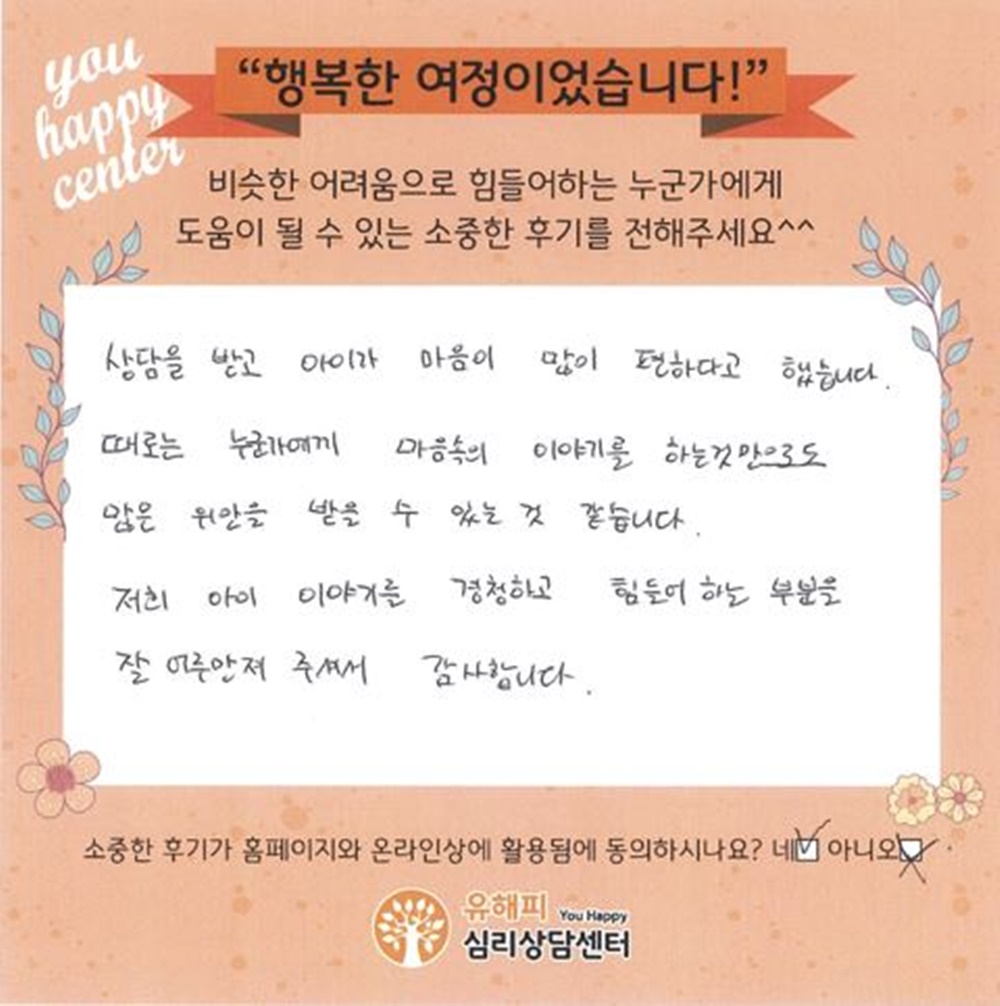 you
happy
center
“행복한 여정이었습니다!”
비슷한 어려움으로 힘들어하는 누군가에게
도움이 될 수 있는 소중한 후기를 전해주세요^^
상담을 받고 아이가 마음이 많이 편하다고 했습니다.
때로는 누군가에게 마음속의 이야기를 하는것만으로도
많은 위안을 받을 수 있는 것 같습니다.
저희 아이 이야기를 경청하고 힘들어 하는 부분을
잘 어루만져 주셔서 감사합니다.
소중한 후기가 홈페이지와 온라인상에 활용됨에 동의하시나요? 네 아니오
유해피 You Happy
심리상담센터